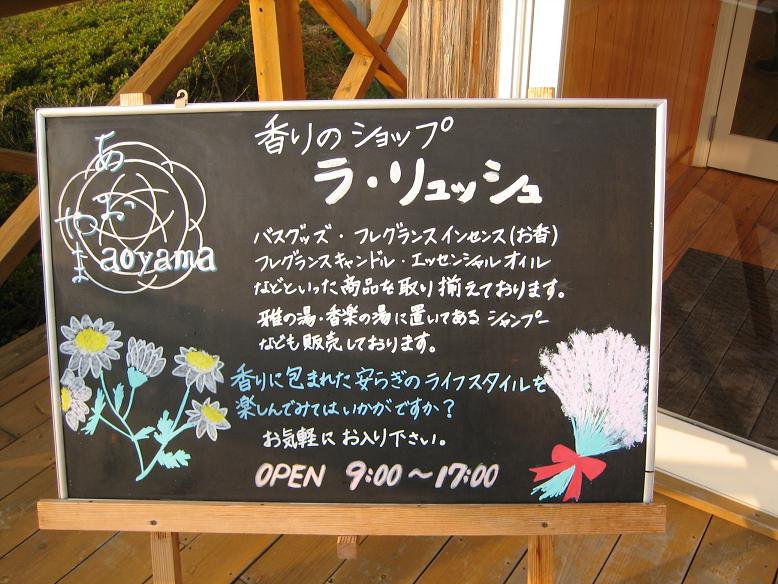 あおやま
aoyama
香りのショップ
ラ・リュッシュ
バスグッズ・フレグランスインセンス(お香)
フレグランスキャンドル・エッセンシャルオイル
などといった商品を取り揃えております。
雅の湯・香楽の湯に置いてあるシャンプー
なども販売しております。
香りに包まれた安らぎのライフスタイルを
楽しんでみてはいかがですか？
お気軽にお入り下さい。
OPEN 9:00〜17:00